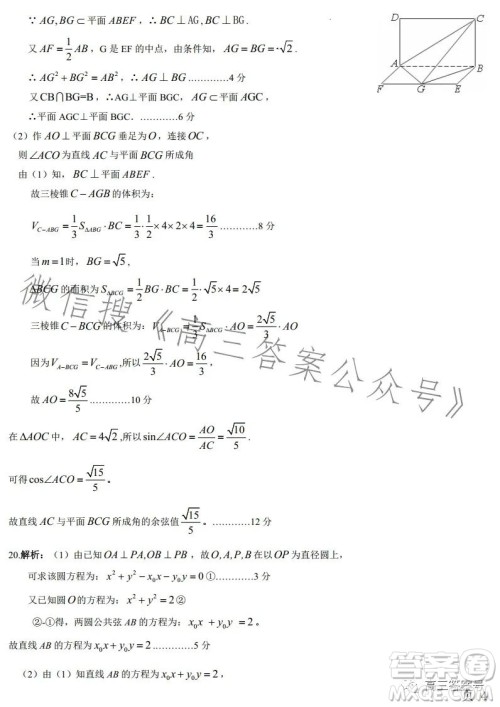 ∵ AG,BG ⊂ 平面 ABEF , ∴ BC ⊥ AG, BC ⊥ BG .
又 AF = 1/2 AB , G 是 EF 的中点，由条件知， AG = BG = √2 .
∴ AG² + BG² = AB² , ∴ AG ⊥ BG …………4分
又 CB∩BG=B , ∴AG⊥平面 BGC , AG ⊂ 平面 AGC ,
∴平面 AGC⊥平面 BGC . …………6分
D
C
A
B
F
G
E
（2）作 AO ⊥ 平面 BCG 垂足为 O , 连接 OC ,
则 ∠ACO 为直线 AC 与平面 BCG 所成角
由（1）知， BC ⊥ 平面 ABEF .
故三棱锥 C－AGB 的体积为：
V_{C－ABG} = 1/3 S_{ΔABG} · BC = 1/3 · 1/2 × 4 × 2 × 4 = 16/3 …………8分
当 m = 1 时， BG = √5 ,
ΔBCG 的面积为 S_{ΔBCG} = 1/2 BG · BC = 1/2 × √5 × 4 = 2√5
三棱锥 C－BCG 的体积为： V_{A－BCG} = 1/3 S_{ΔBCG} · AO = 2√5/3 · AO
因为 V_{A－BCG} = V_{C－ABG} ,所以 2√5/3 · AO = 16/3 ,
故 AO = 8√5/5 …………10分
在 ΔAOC 中， AC = 4√2 ,所以 sin∠ACO = AO/AC = √10/5 .
可得 cos∠ACO = √15/5 .
故直线 AC 与平面 BCG 所成角的余弦值 √15/5 。…………12分
20.解析：（1）由已知 OA ⊥ PA,OB ⊥ PB ，故 O, A, P, B 在以 OP 为直径圆上，
可求该圆方程为： x² + y² − x₀x − y₀y = 0 ①…………3分
又已知圆 O 的方程为： x² + y² = 2 ②
②-①得，两圆公共弦 AB 的方程为： x₀x + y₀y = 2 。
故直线 AB 的方程为 x₀x + y₀y = 2 …………5分
（2）由（1）知直线 AB 的方程为 x₀x + y₀y = 2 ，
微信搜《高三答案公众号》
高三答案号